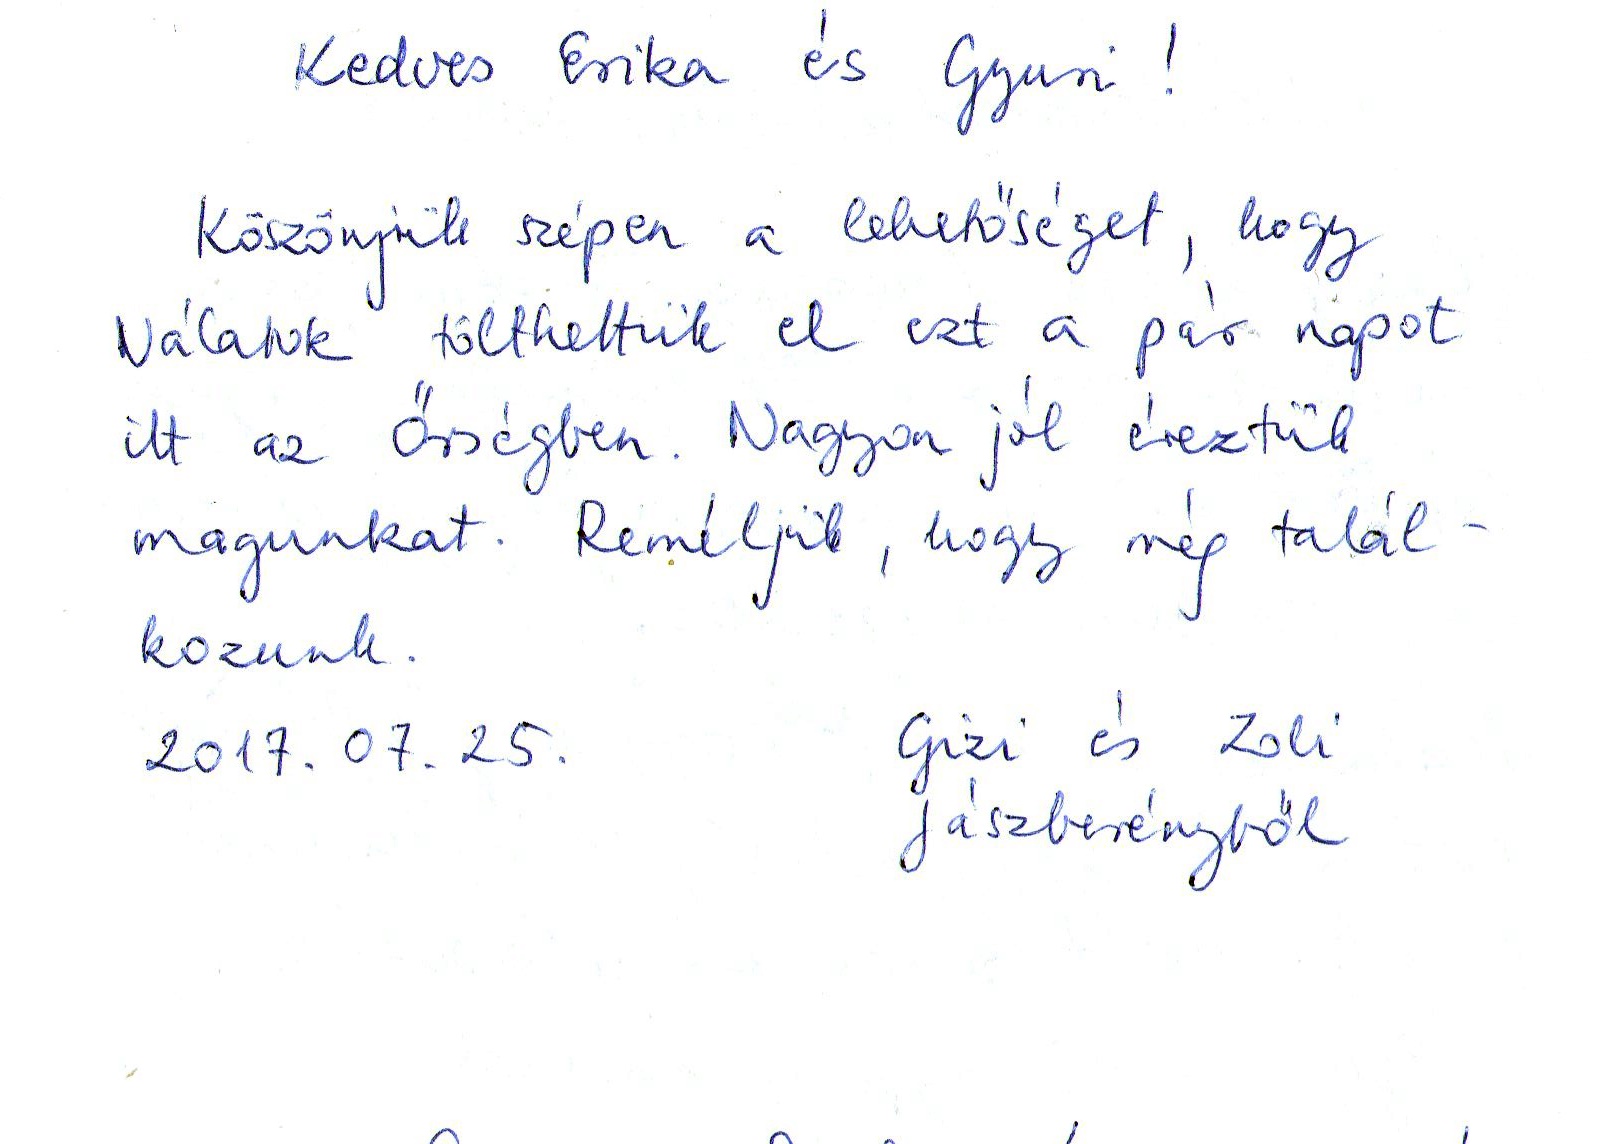 Kedves Erika és Gyuri!
Köszönjük szépen a lehetőséget, hogy
Nálatok tölthettük el ezt a pár napot
itt az Őrségben. Nagyon jól éreztük
magunkat. Reméljük, hogy még talál-
kozunk.
2017. 07. 25. Gizi és Zoli
Jászberényből